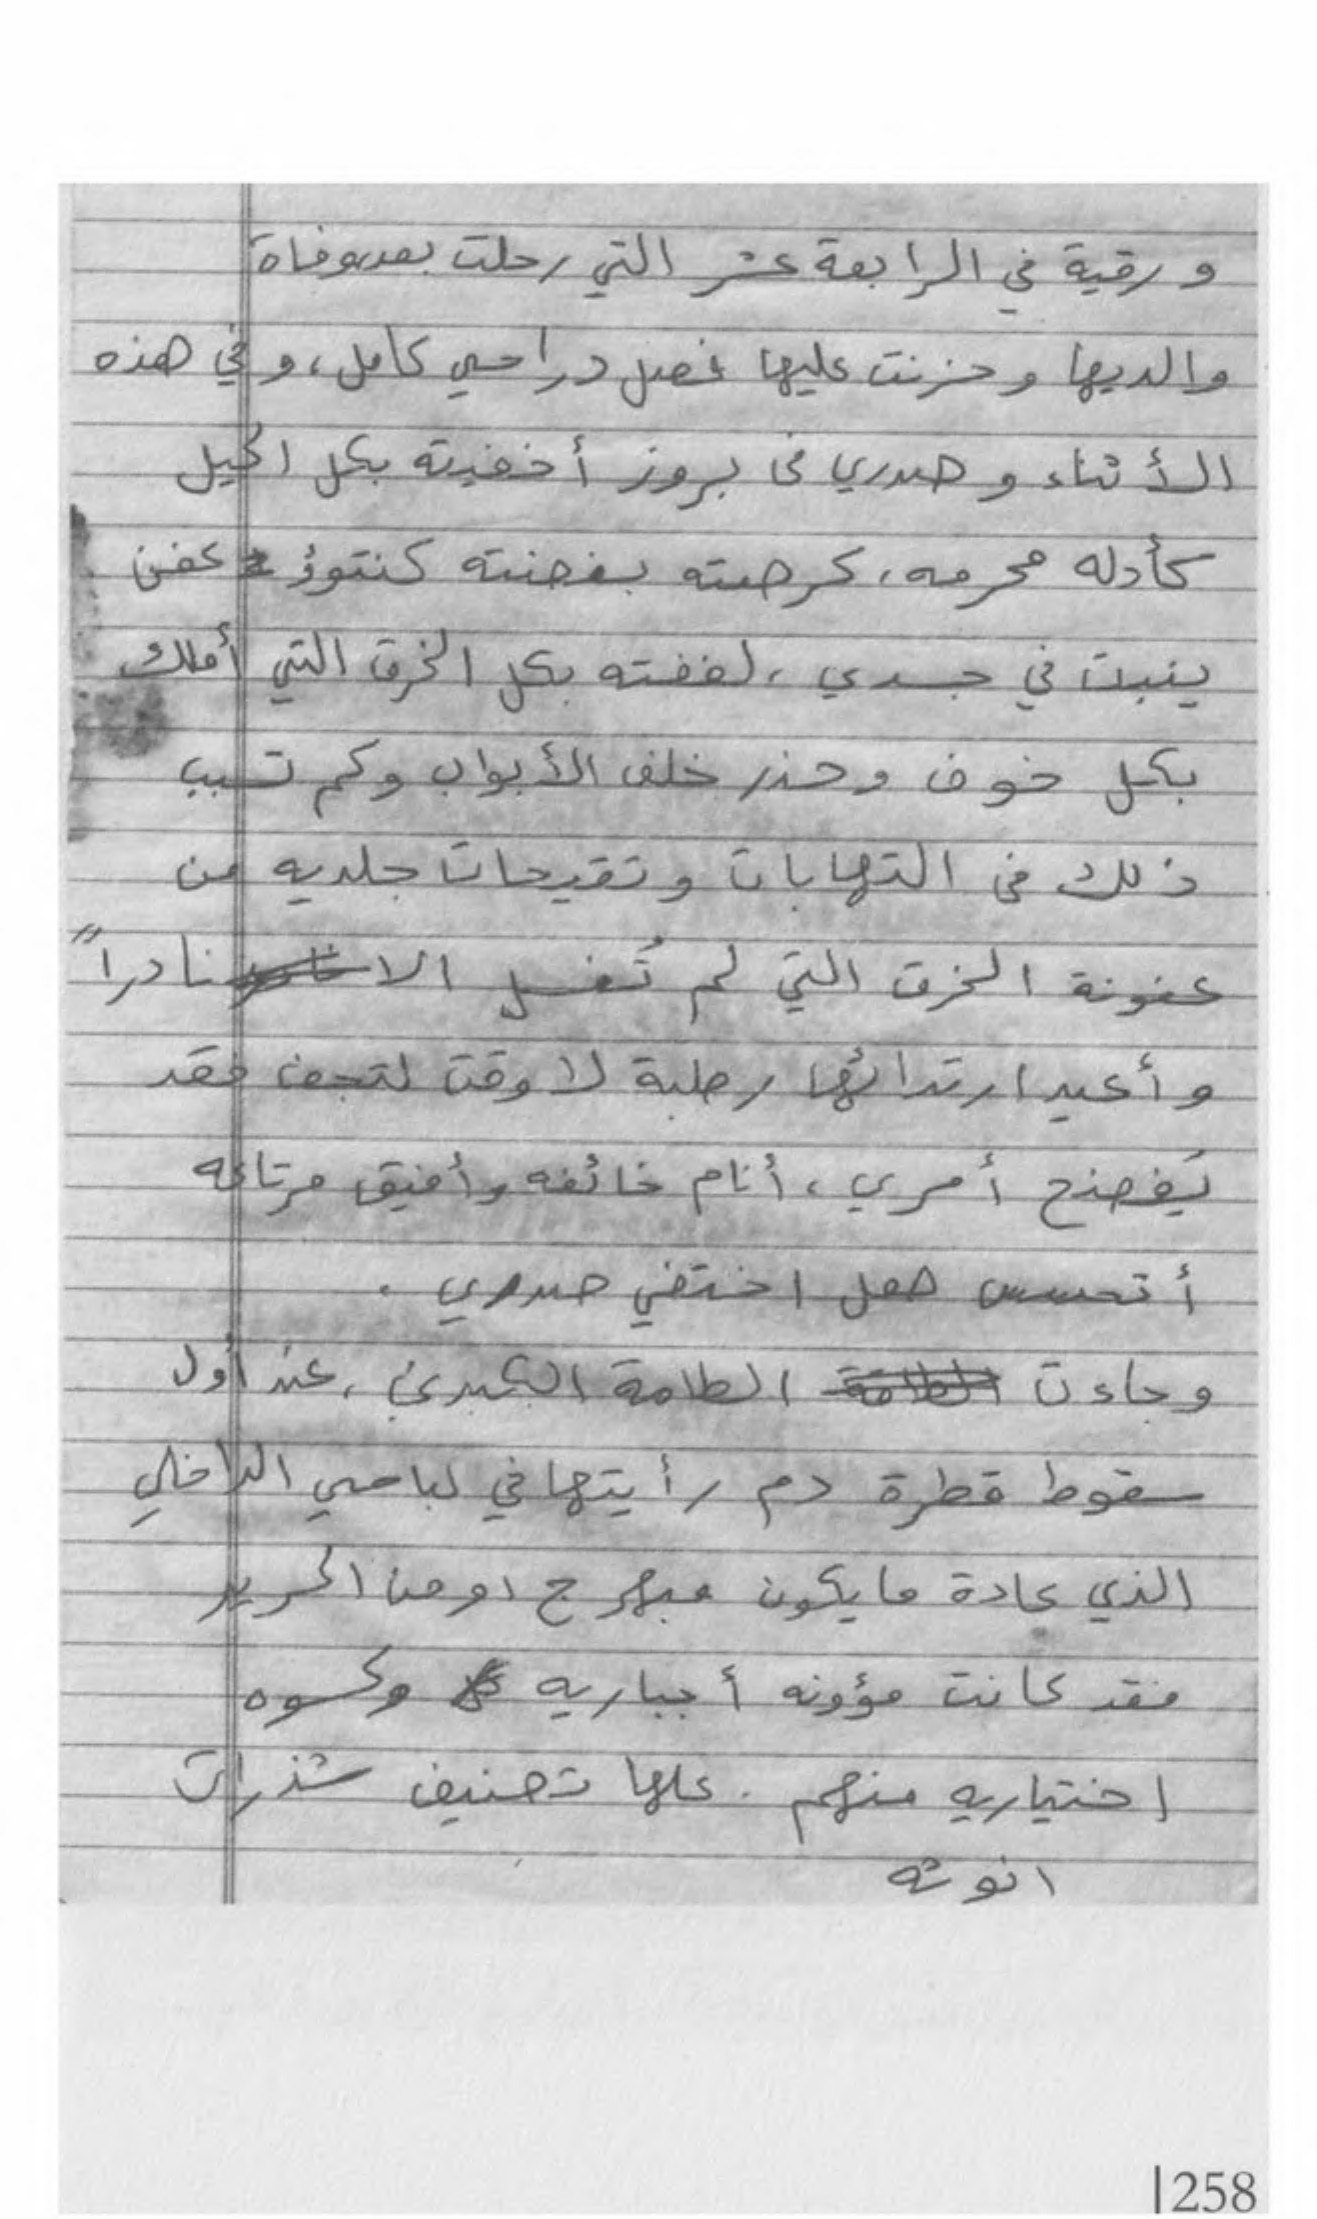 ورقية في الرابعة عشر التي رحلت بعد وفاة
والديها وحزنت عليها فصل دراسي كامل، وفي هذه
الأثناء وصدري في بروز أخفيته بكل الحيل
كأدله محرمه، كرهته بغضته كنتوؤ عفن
ينبت في جسدي، لففته بكل الخرق التي أملك
بكل خوف وحذر خلف الأبواب وكم تسبب
ذلك في التهابات وتقيحات جلديه من
عفونة الخرق التي لم تُغسل الا نادراً
وأعيد ارتدائها رطبة لا وقت لتجف فقد
يُفضح أمري، أنام خائفه وأفيق مرتاعه
أتحسس هل اختفي صدري .
وجاءت الطامة الكبرى، عند أول
سقوط قطرة دم رأيتها في لباسي الداخلي
الذي عادة مايكون مبهرج او من الحرير
فقد كانت مؤونه أجباريه وكسوه
اختياريه منهم . علها تضيف شذرات
انوثه
|258